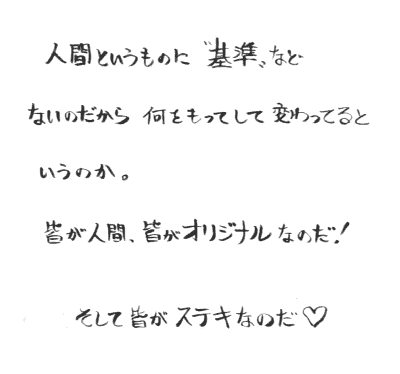 人間というものに〝基準〟など
ないのだから 何をもってして変わってると
いうのか。
皆が人間、皆がオリジナルなのだ!
そして皆がステキなのだ♡